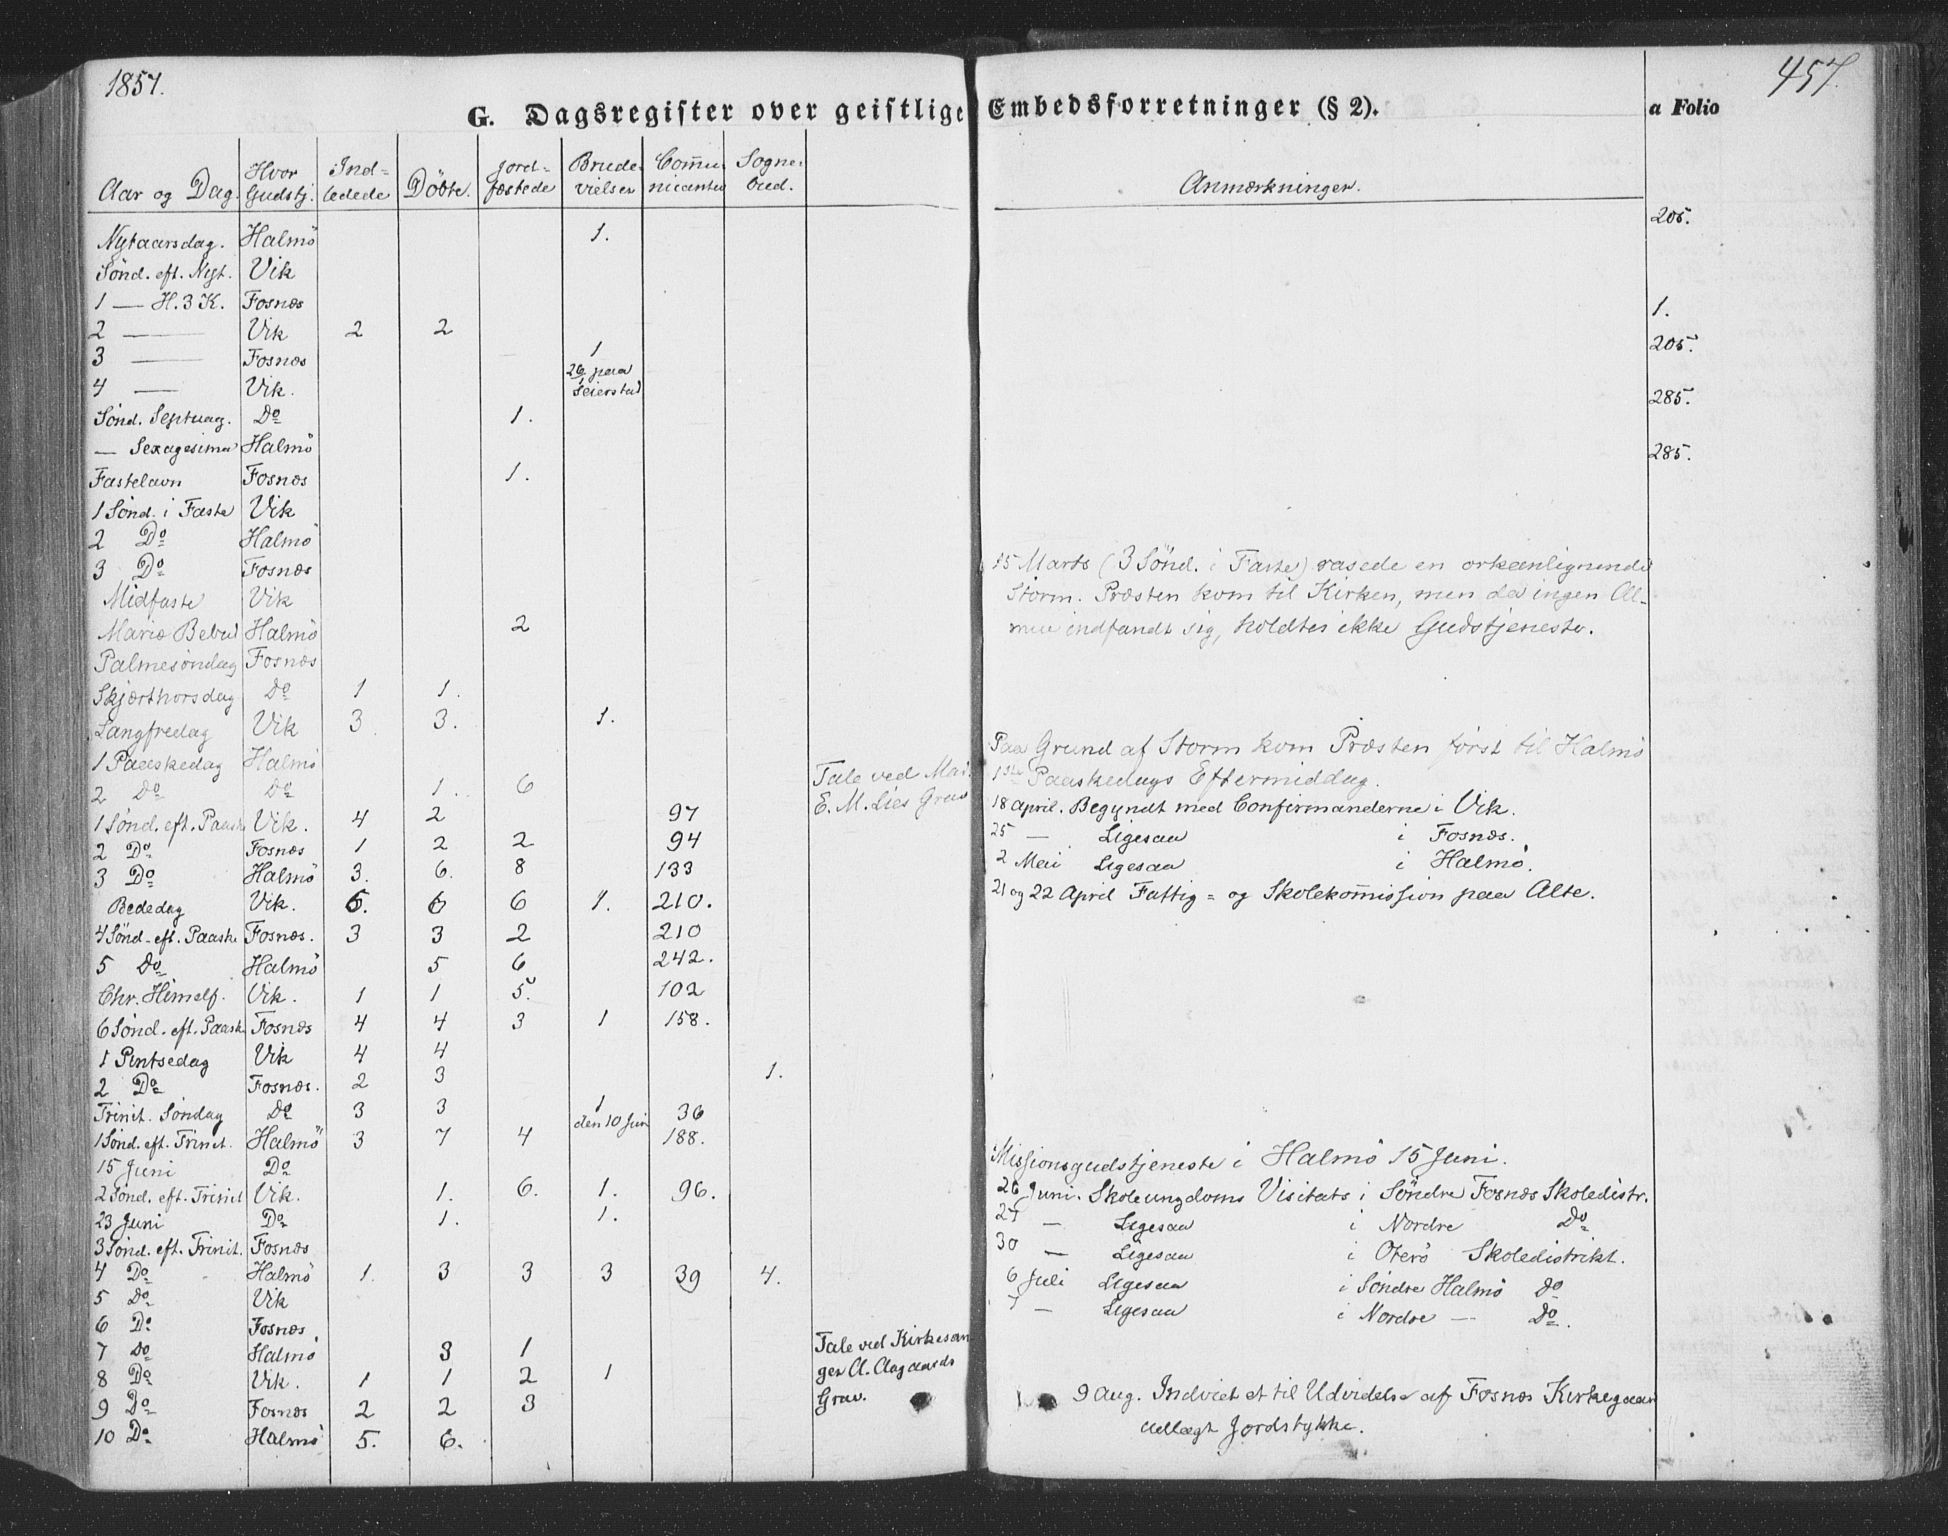 1857.
457.
G. Dagsregister over geistlige Embedsforretninger (§ 2).
a Folio
Aar og Dag. Hvor Gudstj. Ind-ledede Döbte. Jord-fæstede Brude-vielser Com̄u-nicanter Sogne-bud. Anmærkninger.
Nytaarsdag. Halmö 1. 205.
Sönd. eft. Nyt. Vik
1 — H. 3 K. Fosnæs
2 — Vik 2 2 1.
3 — Fosnæs 1 205.
4 — Vik. 26 paa Seierstad
Sönd. Septuag. Do 1. 285.
— Sexagesima Halmö
Fastelavn Fosnæs 1. 285.
1 Sönd. i Faste Vik
2 Do Halmö
3 Do Fosnæs
Midfaste Vik
Mariæ Bebud Halmö 2
Palmesöndag Fosnæs
Skjærthorsdag Do 1 1.
Langfredag Vik 3 3. 1.
1 Paaskedag Halmö
2 Do Do 1. 6
1 Sönd. eft. Paaske Vik. 4 2 97
2 Do Fosnæs 1 2 2 94
3 Do Halmö 3. 6. 8 133
Bededag Vik. 6. 6 6 1. 210.
4 Sönd. eft. Paaske Fosnæs. 3 3 2 210
5 Do Halmö 5 6 242.
Chr. Himelf. Vik. 1 1 5. 102
6 Sönd. eft. Paask. Fosnæs 4 4 3 1 158.
1 Pintsedag Vik 4 4
2 Do Fosnæs. 2 3 1.
Trinit. Söndag Do 3 3 1 den 10 Jun 36
1 Sönd. eft. Trinit. Halmö 3 7 4 188.
15 Juni Do
2 Sönd. eft. Trinit Vik. 1. 6. 1. 96.
23 Juni Do 1. 1.
3 Sönd. eft. Trinit. Fosnæs
4 Do Halmö 1. 3 3 3 39 4.
5 Do Vik
6 Do Fosnæs
7 Do Halmö 3 1
8 Do Vik. 1 1 2 1
9 Do Fosnæs 2 2 3
10 Do Halmö 5. 6.
Tale ved
E. M. Lies Grav
Tale ved Kirkesan
ger A. Aagaards
Grav.
15 Marts (3 Sönd. i Faste) rasede en orkanlignende
Storm. Præsten kom til Kirken, men da ingen Al-
mue indfandt sig, holdtes ikke Gudstjeneste.
Paa Grund af Storm kom Præsten först til Halmö
1ste Paaskedags Eftermiddag.
18 April. Begyndt med Confirmanderne i Vik.
25 — Ligesaa i Fosnæs.
2 Mai Ligesaa i Halmö.
21 og 22 April Fattig- og Skolekom̄ission paa Alte.
Missionsgudstjeneste i Halmö 15 Juni.
26 Juni. Skoleungdoms Visitats i Söndre Fosnæs Skoledistr.
27 — Ligesaa i Nordre Do
30 — Ligesaa i Oterö Skoledistrikt.
6 Juli Ligesaa i Söndre Halmö Do
7 — Ligesaa i Nordre — Do.
9 Aug. Indviet et til Udvidelse af Fosnæs Kirkegaar
udlagt Jordstykke.